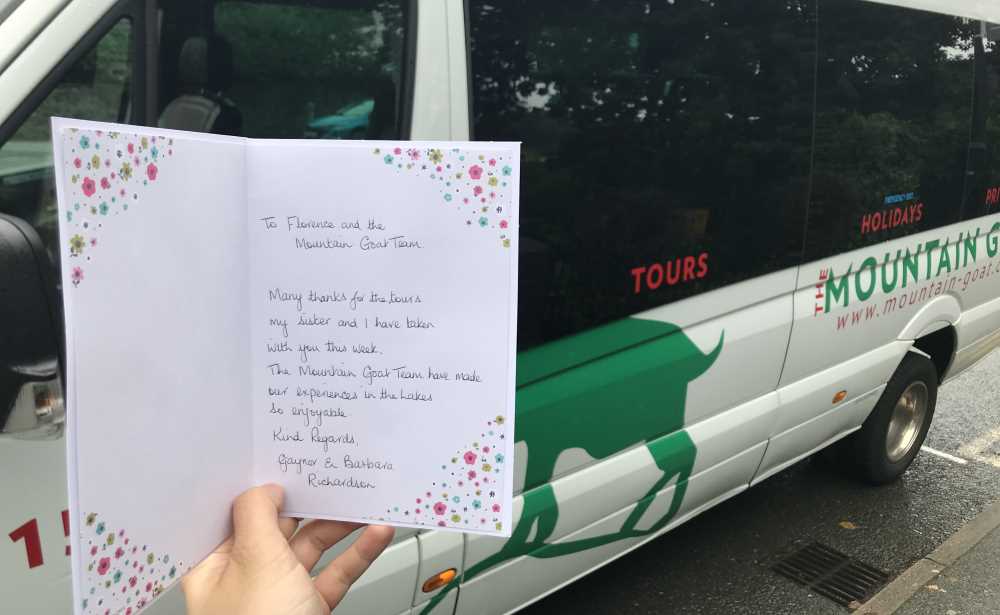 To Florence and the
Mountain Goat Team.
Many thanks for the tours
my sister and I have taken
with you this week.
The Mountain Goat Team have made
our experiences in the Lakes
so enjoyable.
Kind Regards,
Gaynor & Barbara
Richardson
TOURS
HOLIDAYS
THE MOUNTAIN G
www.mountain-goat.c